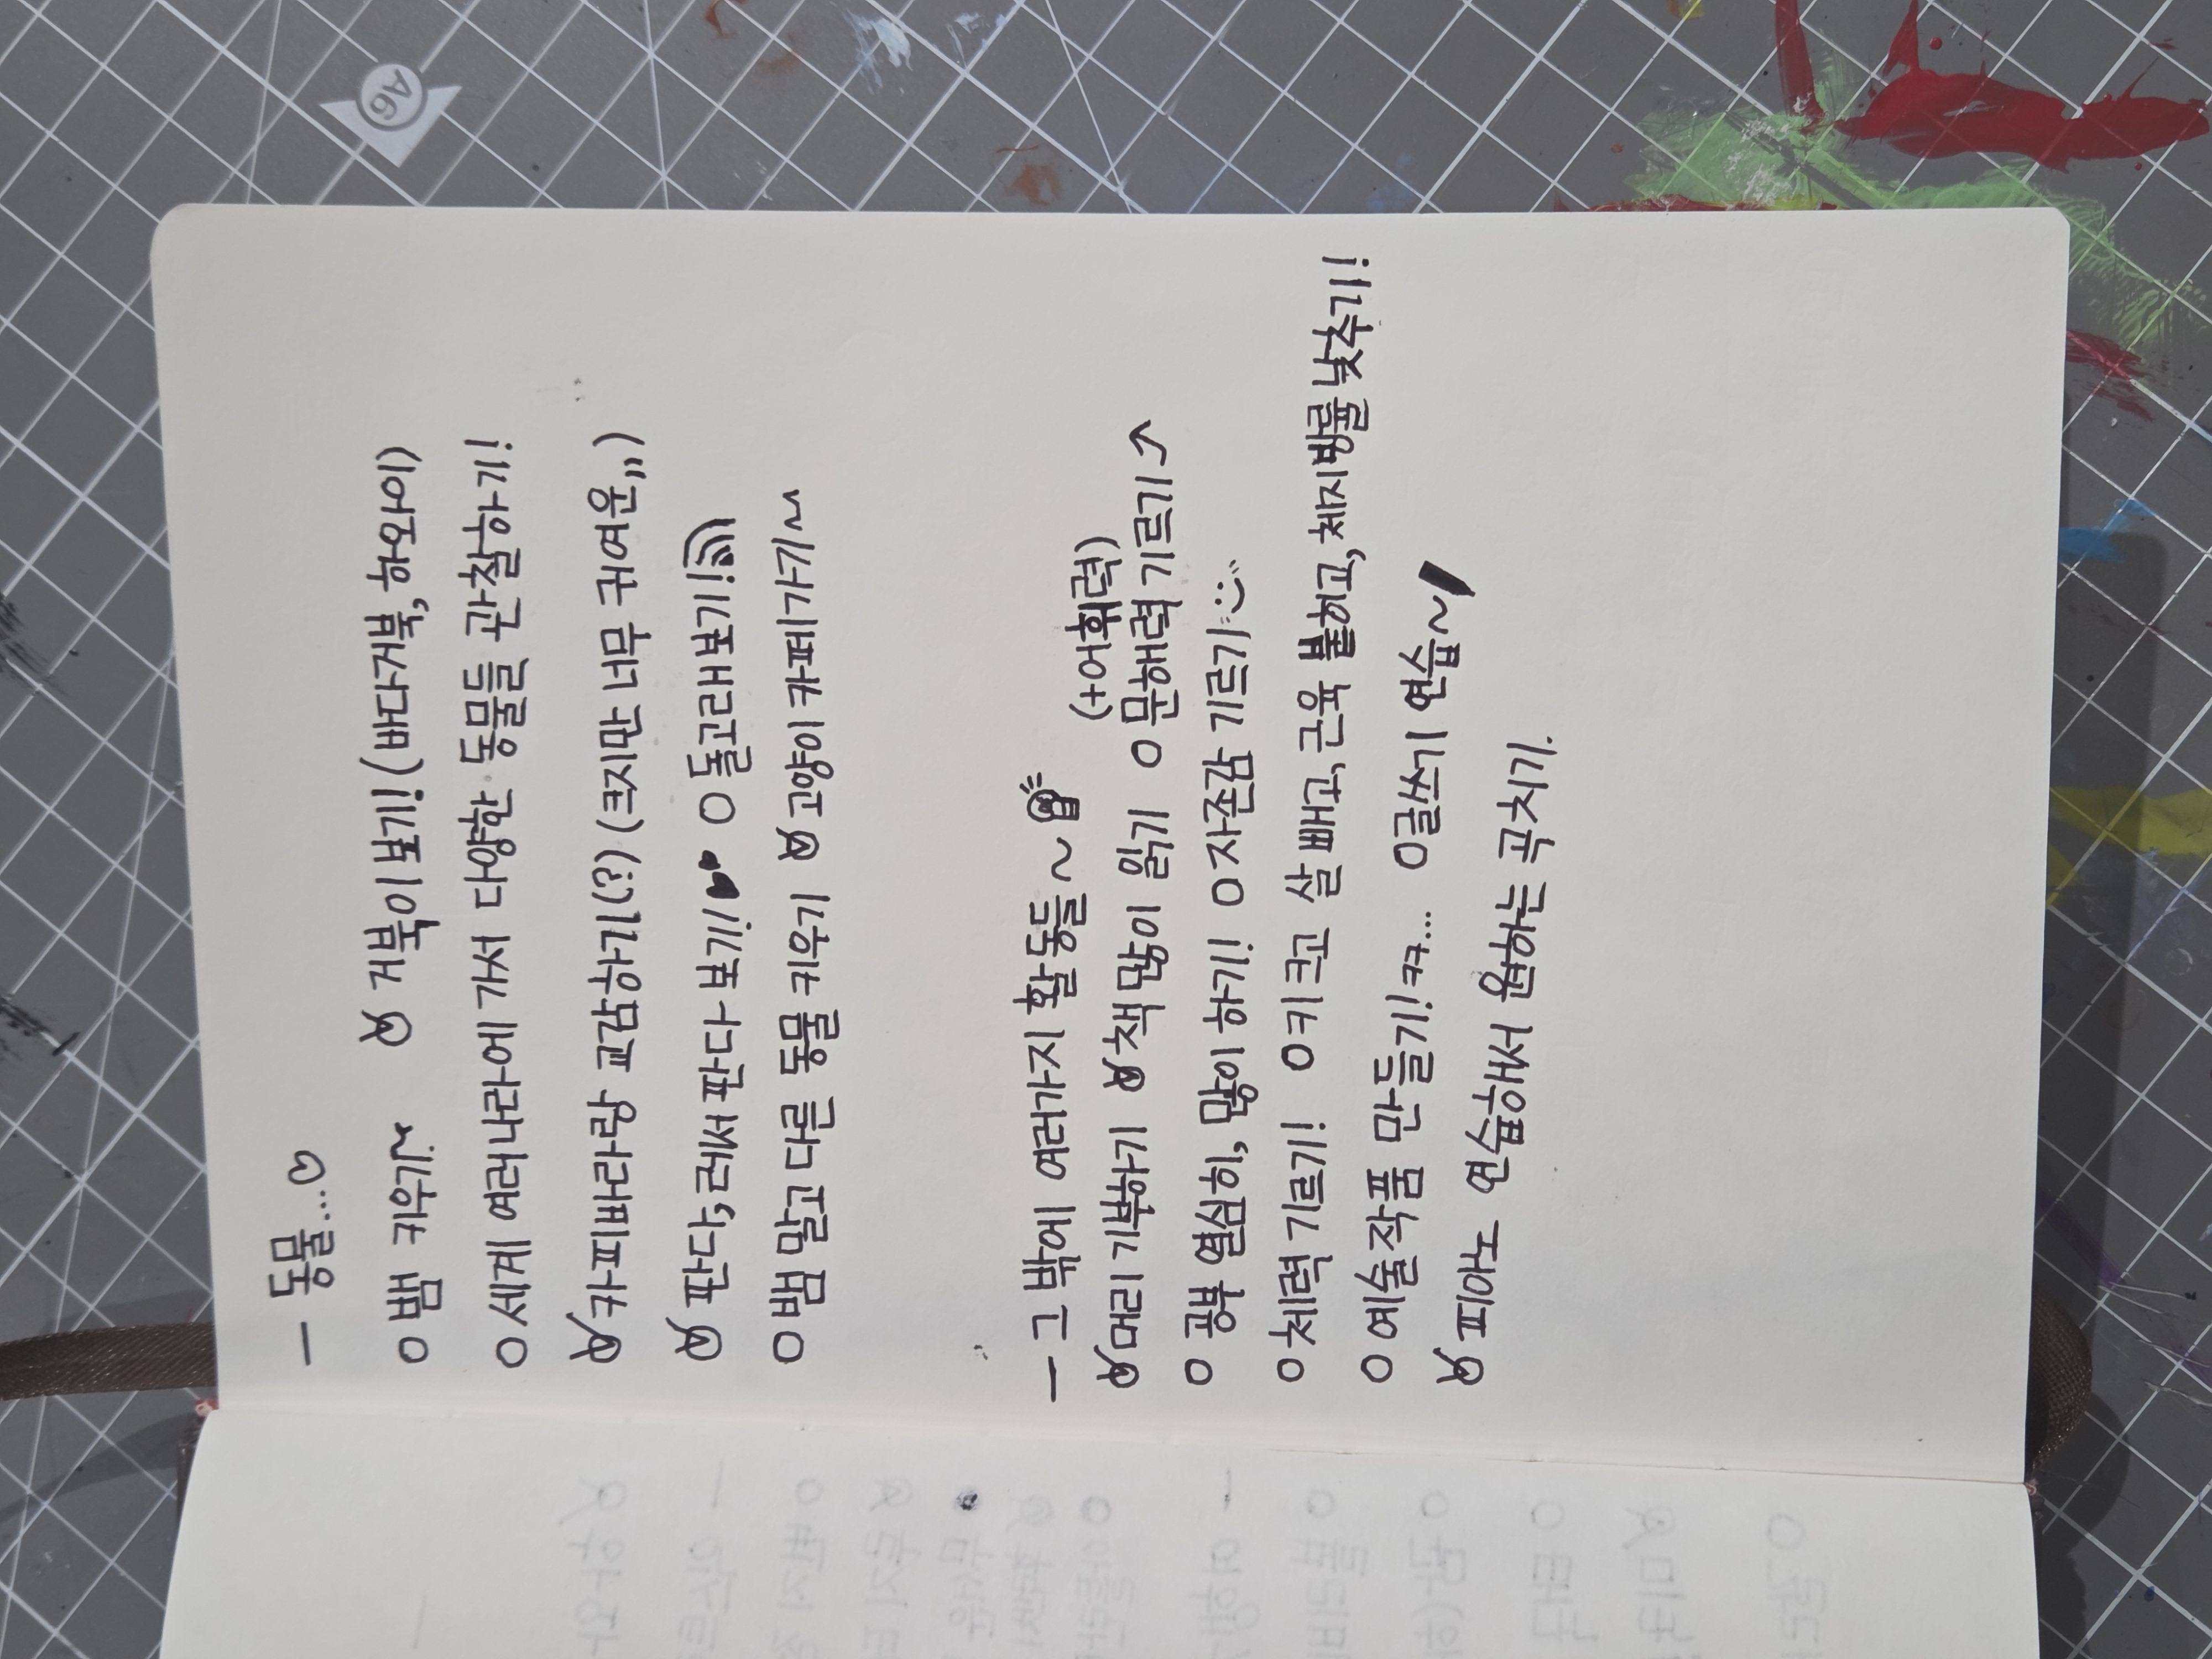 — 동물...♡
○ 뱀 키우기~ ○ 거북이 보기! (바다거북, 하와이)
○ 세계 여러나라에 가서 다양한 동물들 관찰하기!
○ 카피바라랑 교감하기(?) (크지만 너무 귀여운,,,)
○ 판다, 레서판다 보기! ○ 돌고래보기!
○ 뱀 말고 다른 동물 키우기 ○ 고양이 카페 가기~
— 그 밖에 여러가지 활동들~
(+어휘력)
○ 머리 기부하기 ○ 책 많이 읽기 ○ 문해력 기르기↗
○ 공부 열심히, 많이 하기! ○ 자존감 기르기
○ 체력 기르기! ○ 키 크고 살 빼고, 근육 하고, 체지방률 낮추기!
○ 예술작품 만들기! ㅋㅋ... ○ 글쓰기 연습~
○ 피아노 연습해서 원하는 곡 치기.
A6